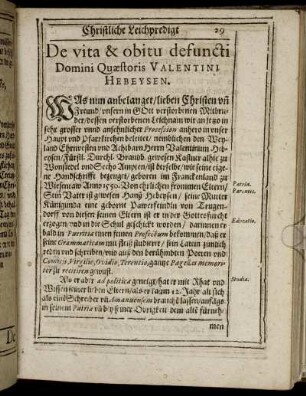 Christliche Leichpredigt 29
De vita & obitu defuncti
Domini Quæstoris VALENTINI
HEBEYSEN.
WAs nun anbelanget/lieben Christen vñ
Freund/unsern in GOtt verstorbenen Mitbru-
der/dessen verstorbenen Leichnam wir an jetzo in
sehr grosser und ansehnlicher Procession anhero in unser
Haupt und Pfarrkirchen beleitet/nemblichen den Wey-
land Ehrnvesten und Achtbarn Herrn Valentinum Heb-
eysen/Fürstl. Brandb. gewesen Kastner allhie zu
Wonsiedel und Sechs Ämptern ist derselb/wie seine eige-
ne Handschrifft bezeuget/geboren im Franckenland zu
Anno 1550. Von ehrlichen frommen Eltern/
Sein Vater ist gewesen Hanß Hebeysen/seine Mutter
Künigunda eine geborne
dorff von diesen seinen Eltern ist er in der Gottesfurcht
erzogen und in der Schul geschickt worden/da nun er
bald in Patria einen feinen Profectum bekommen/daß er
seine Grammaticam mit fleiß studiert/sein Latein zimlich
reden und schreiben/wie auß den berühmbten Poeten und
Virgilio, Ovidio, Terentio, gantze Pagellas memori-
ter zu recitirn gewust.
Als er aber ad politica geneiget/hat er mit Rhat und
Wissen seiner lieben Eltern/als er kaum 12. Jahr alt sich
als ein Schreiber vñ Amanuensem brauchen lassen/anfangs
in seinem Patria
men
Patria.
Parentes.
Educatio.
Studia.